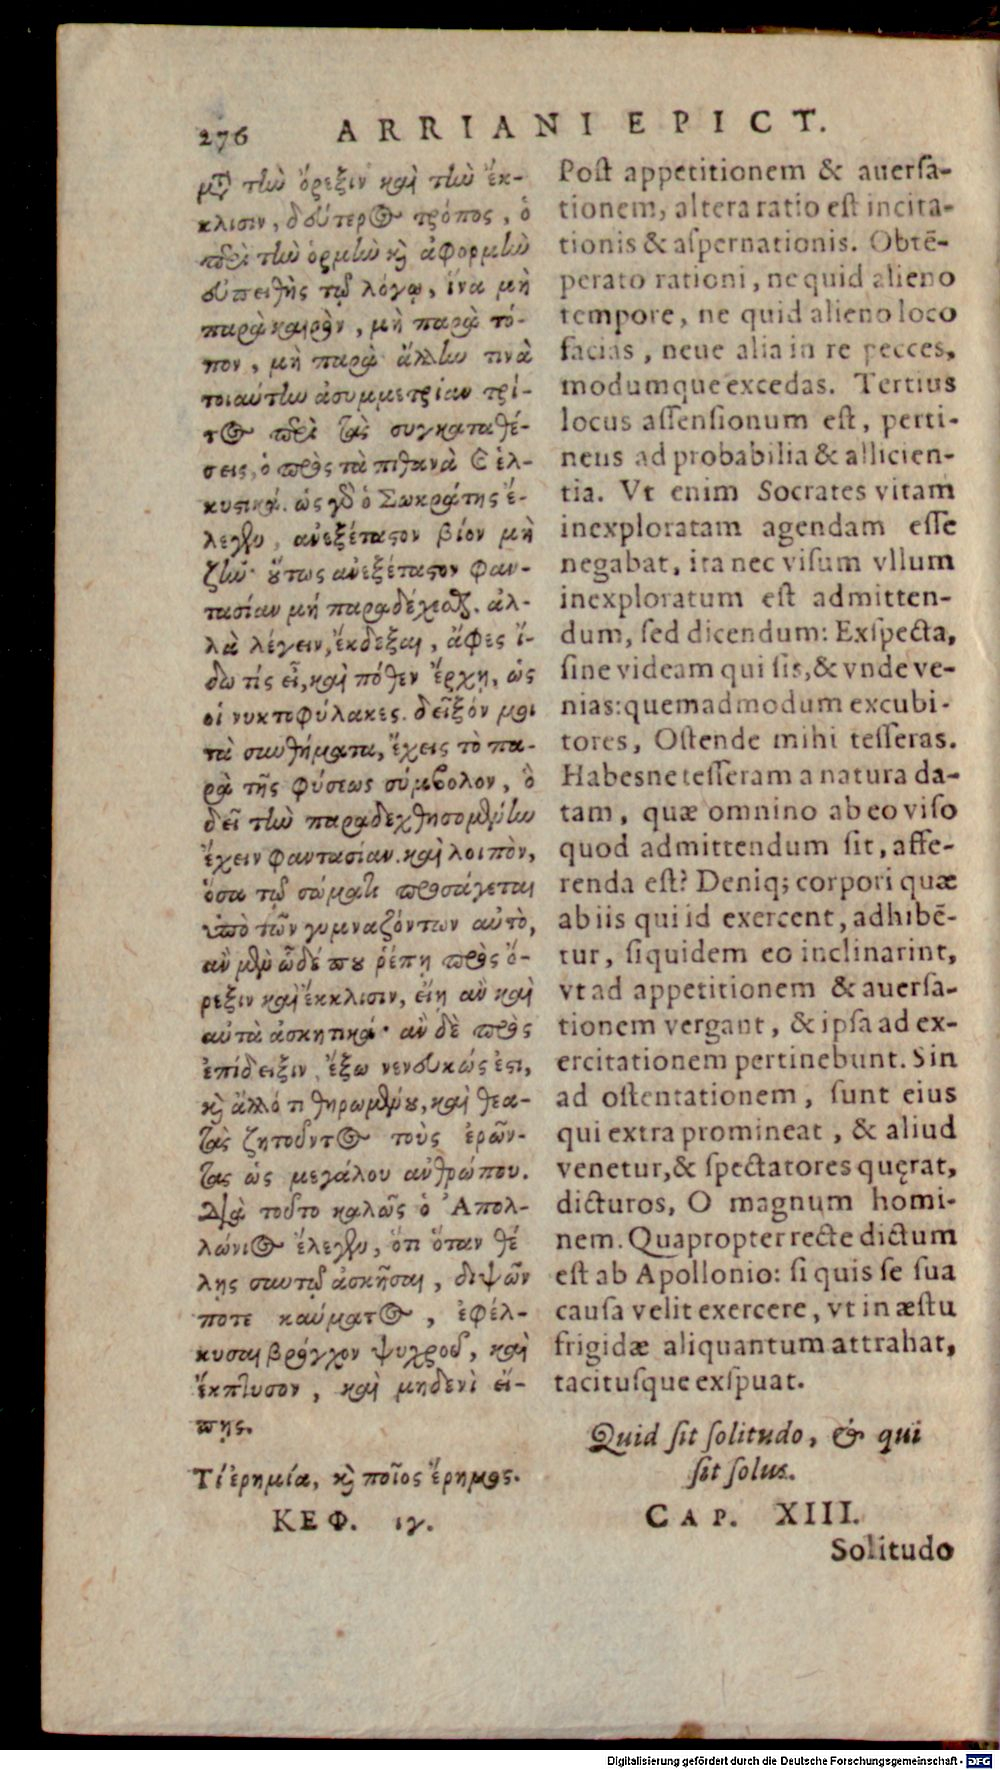 276 ARRIANI EPICT.
μῷ τὴν ὄρεξιν καὶ τὴν ἔκ-
κλισιν, δεύτερος τρόπος, ὁ
περὶ τὴν ὁρμὴν κὶ ἀφορμὴν
εὐπειθὴς τῷ λόγῳ, ἵνα μὴ
παρὰ καιρὸν, μὴ παρὰ τό-
πον, μὴ παρὰ ἄλλην τινὰ
τοιαύτην ἀσυμμετρίαν τρί-
τος περὶ τὰς συγκαταθέ-
σεις, ὁ πρὸς τὰ πιθανὰ καὶ ἑλ-
κυστικά. ὡς γὰρ ὁ Σωκράτης ἔ-
λεγεν, ἀνεξέταστον βίον μὴ
ζῆν· οὕτως ἀνεξέταστον φαν-
τασίαν μὴ παραδέχεσθαι. ἀλ-
λὰ λέγειν, ἔκδεξαι, ἄφες ἴ-
δω τίς εἶ, καὶ πόθεν ἔρχῃ, ὡς
οἱ νυκτοφύλακες. δεῖξόν μοι
τὰ συνθήματα, ἔχεις τὸ πα-
ρὰ τῆς φύσεως σύμβολον, ὃ
δεῖ τὴν παραδεχθησομένην
ἔχειν φαντασίαν. καὶ λοιπὸν,
ὅσα τῷ σώματι προσάγεται
ὑπὸ τῶν γυμναζόντων αὐτὸ,
ἂν μὲν ὧδέ που ῥέπῃ πρὸς ὄ-
ρεξιν καὶ ἔκκλισιν, εἴη ἂν καὶ
αὐτὰ ἀσκητικά· ἂν δὲ πρὸς
ἐπίδειξιν, ἔξω νενευκώς ἐστι,
κὶ ἄλλό τι θηρωμένου, καὶ θεα-
τὰς ζητοῦντος τοὺς ἐρῶν-
τας ὡς μεγάλου ἀνθρώπου.
Διὰ τοῦτο καλῶς ὁ Ἀπολ-
λώνιος ἔλεγεν, ὅτι ὅταν θέ
λῃς σαυτῷ ἀσκῆσαι, διψῶν
ποτε καύματος, ἐφέλ-
κυσαι βρόγχον ψυχροῦ, καὶ
ἔκπτυσον, καὶ μηδενὶ εἴ-
πῃς.
Τί ἐρημία, κὶ ποῖος ἔρημος.
ΚΕΦ. ιγ.
Post appetitionem & auersa-
tionem, altera ratio est incita-
tionis & aspernationis. Obtẽ-
perato rationi, ne quid alieno
tempore, ne quid alieno loco
facias, neue alia in re pecces,
modumque excedas. Tertius
locus assensionum est, perti-
nens ad probabilia & allicien-
tia. Vt enim Socrates vitam
inexploratam agendam esse
negabat, ita nec visum vllum
inexploratum est admitten-
dum, sed dicendum: Exspecta,
sine videam qui sis, & vnde ve-
nias: quemadmodum excubi-
tores, Ostende mihi tesseras.
Habesne tesseram a natura da-
tam, quæ omnino ab eo viso
quod admittendum sit, affe-
renda est? Deniq; corpori quæ
ab iis qui id exercent, adhibẽ-
tur, siquidem eo inclinarint,
vt ad appetitionem & auersa-
tionem vergant, & ipsa ad ex-
ercitationem pertinebunt. Sin
ad ostentationem, sunt eius
qui extra promineat, & aliud
venetur, & spectatores quęrat,
dicturos, O magnum homi-
nem. Quapropter recte dictum
est ab Apollonio: si quis se sua
causa velit exercere, vt in æstu
frigidæ aliquantum attrahat,
tacitusque exspuat.
Quid sit solitudo, & qui
sit solus.
CAP. XIII.
Solitudo
Digitalisierung gefördert durch die Deutsche Forschungsgemeinschaft - DFG